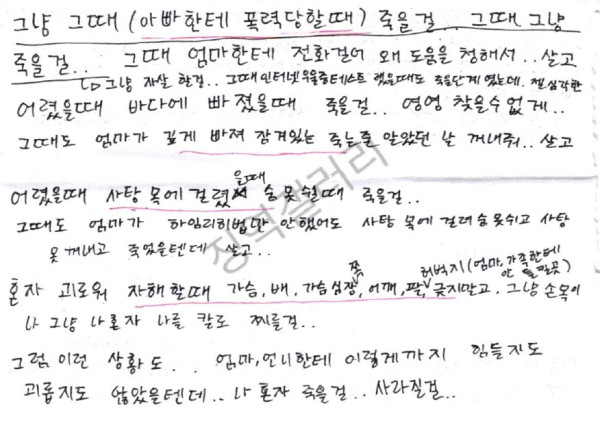 그냥 그때 (아빠한테 폭력당할때) 죽을걸... 그때 그냥
죽을걸.. 그때 엄마한테 전화걸어 왜 도움을 청해서.. 살고
↳ 그냥 자살 할걸.. 그때 인터넷 우울증테스트 했을때도 죽을단계였는데. 젤심각한
어렸을때 바다에 빠졌을때 죽을걸.. 영영 찾을수 없게..
그때도 엄마가 깊게 빠져 잠겨있는 죽는줄 알았던 날 꺼내줘.. 살고
어렸을때 사탕 목에 걸렸을때 숨 못쉴때 죽을걸..
그때도 엄마가 하임리히법만 안했어도 사탕 목에 걸려 숨 못쉬고 사탕
못 꺼내고 죽었을텐데 살고..
혼자 괴로워 자해할때 가슴, 배, 가슴심장쪽, 어깨, 팔, 허벅지 (엄마, 가족한테 안 들킬곳) 긋지말고. 그냥 손목이
나 그냥 나혼자 나를 칼로 찌를걸..
그럼, 이런 상황도.. 엄마, 언니한테 이렇게까지 힘들지도
괴롭지도 않았을텐데.. 나 혼자 죽을걸.. 사라질걸..